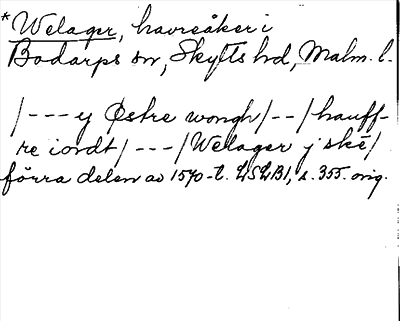 *Welager, havreåker i
Bodarps sn, Skytts hd, Malm. l.
/---ej Østre wongh/--/hauff-
re iordt/---/Welager j skē/
förra delen av 1570-t. LSLB1, s. 355. orig.